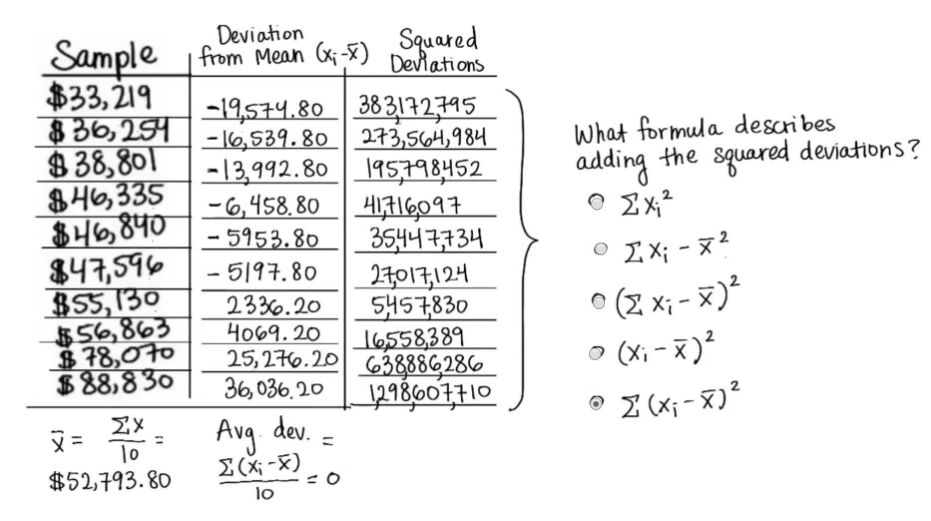 Sample | Deviation from Mean (xᵢ-x̄) | Squared Deviations
$33,219 | -19,574.80 | 383,172,795
$36,254 | -16,539.80 | 273,564,984
$38,801 | -13,992.80 | 195,798,452
$46,335 | -6,458.80 | 41,716,097
$46,840 | -5953.80 | 35,447,734
$47,596 | -5197.80 | 27,017,124
$55,130 | 2336.20 | 5,457,830
$56,863 | 4069.20 | 16,558,389
$78,070 | 25,276.20 | 638,886,286
$88,830 | 36,036.20 | 1,298,607,710
x̄ = Σx/10 =
$52,793.80
Avg. dev. =
Σ(xᵢ-x̄)/10 = 0
What formula describes
adding the squared deviations?
Σxᵢ²
Σxᵢ - x̄²
(Σxᵢ - x̄)²
(xᵢ - x̄)²
Σ(xᵢ - x̄)²